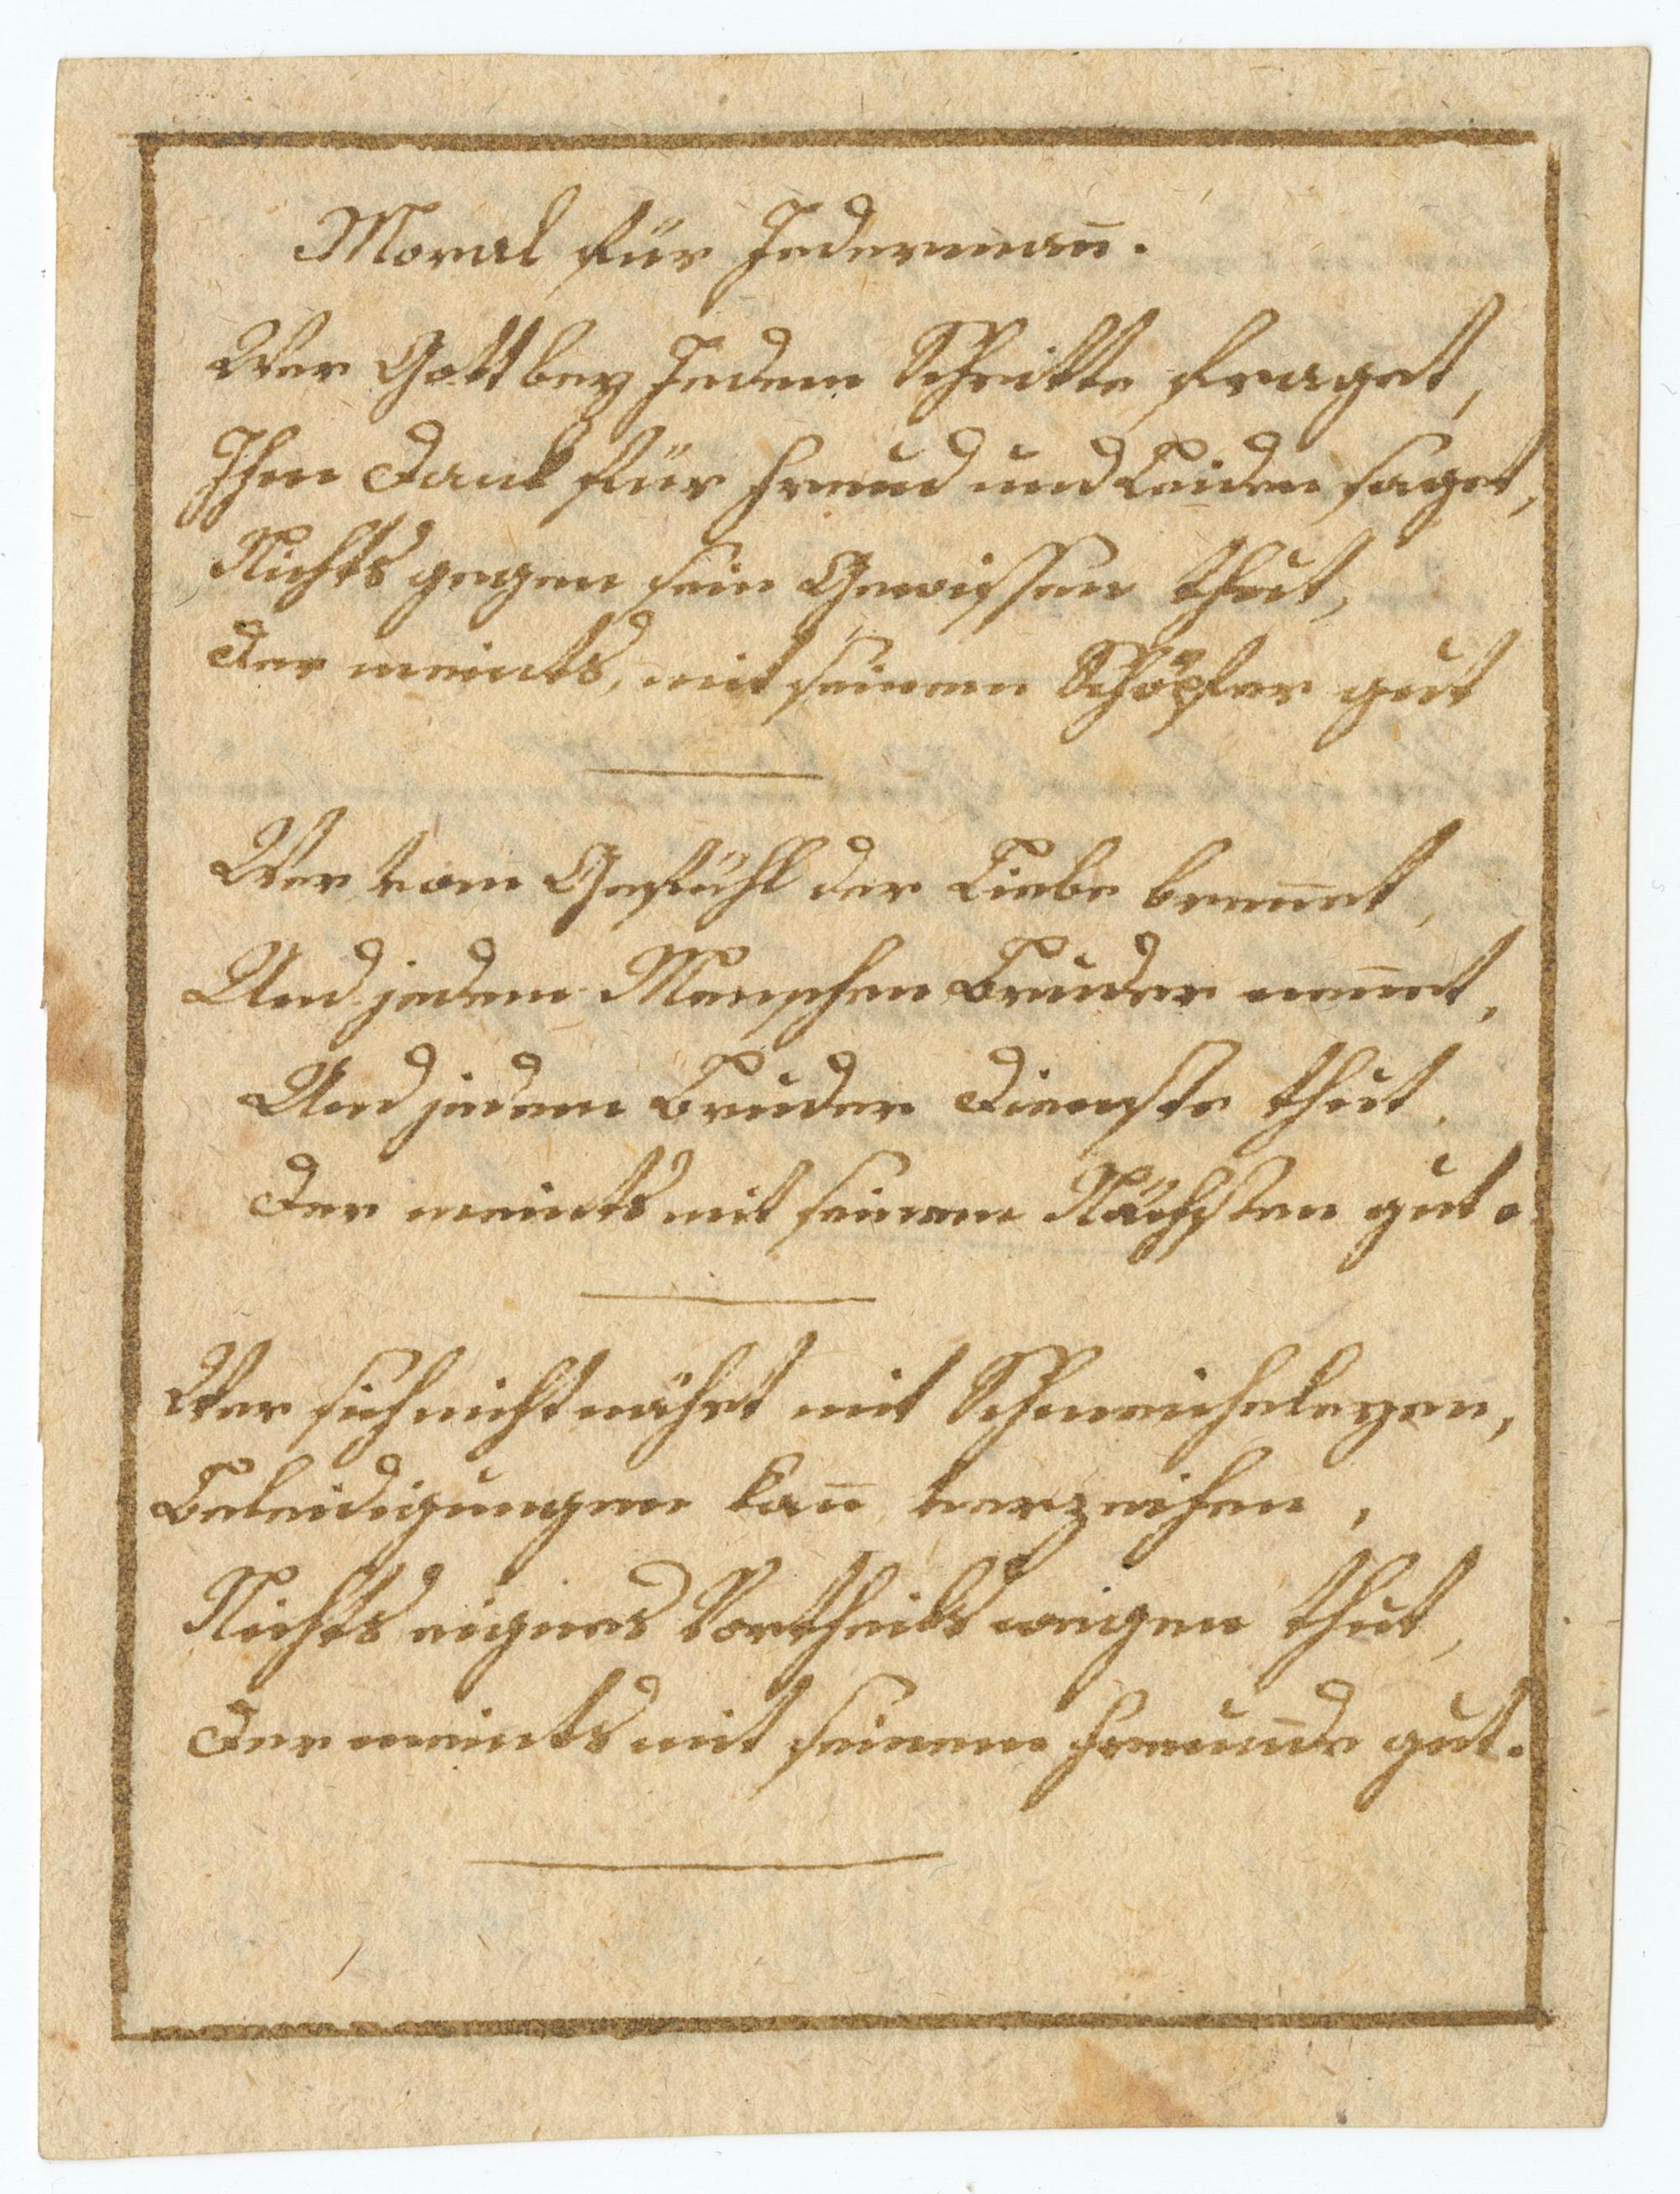 Moral für Jederman̅.
Wer Gott bey Jedem Schritte fraget,
Ihm Dank für Freud und Leiden saget,
Nichts gegen sein Gewissen thut,
Der meints, mit seinem Schöpfer gut
Wer vom Gefühl der Liebe bren̅et,
Und jedem Menschen Bruder nen̅et,
Und jedem Bruder Dienste thut,
Der meints mit seinem Nächsten gut.
Wer sich nicht nährt mit Schmeicheleyen,
Beleidigungen kan̅ verzeihen,
Nichts eignes Vortheils weigen thut,
Der meints mit seinem Freunde gut.